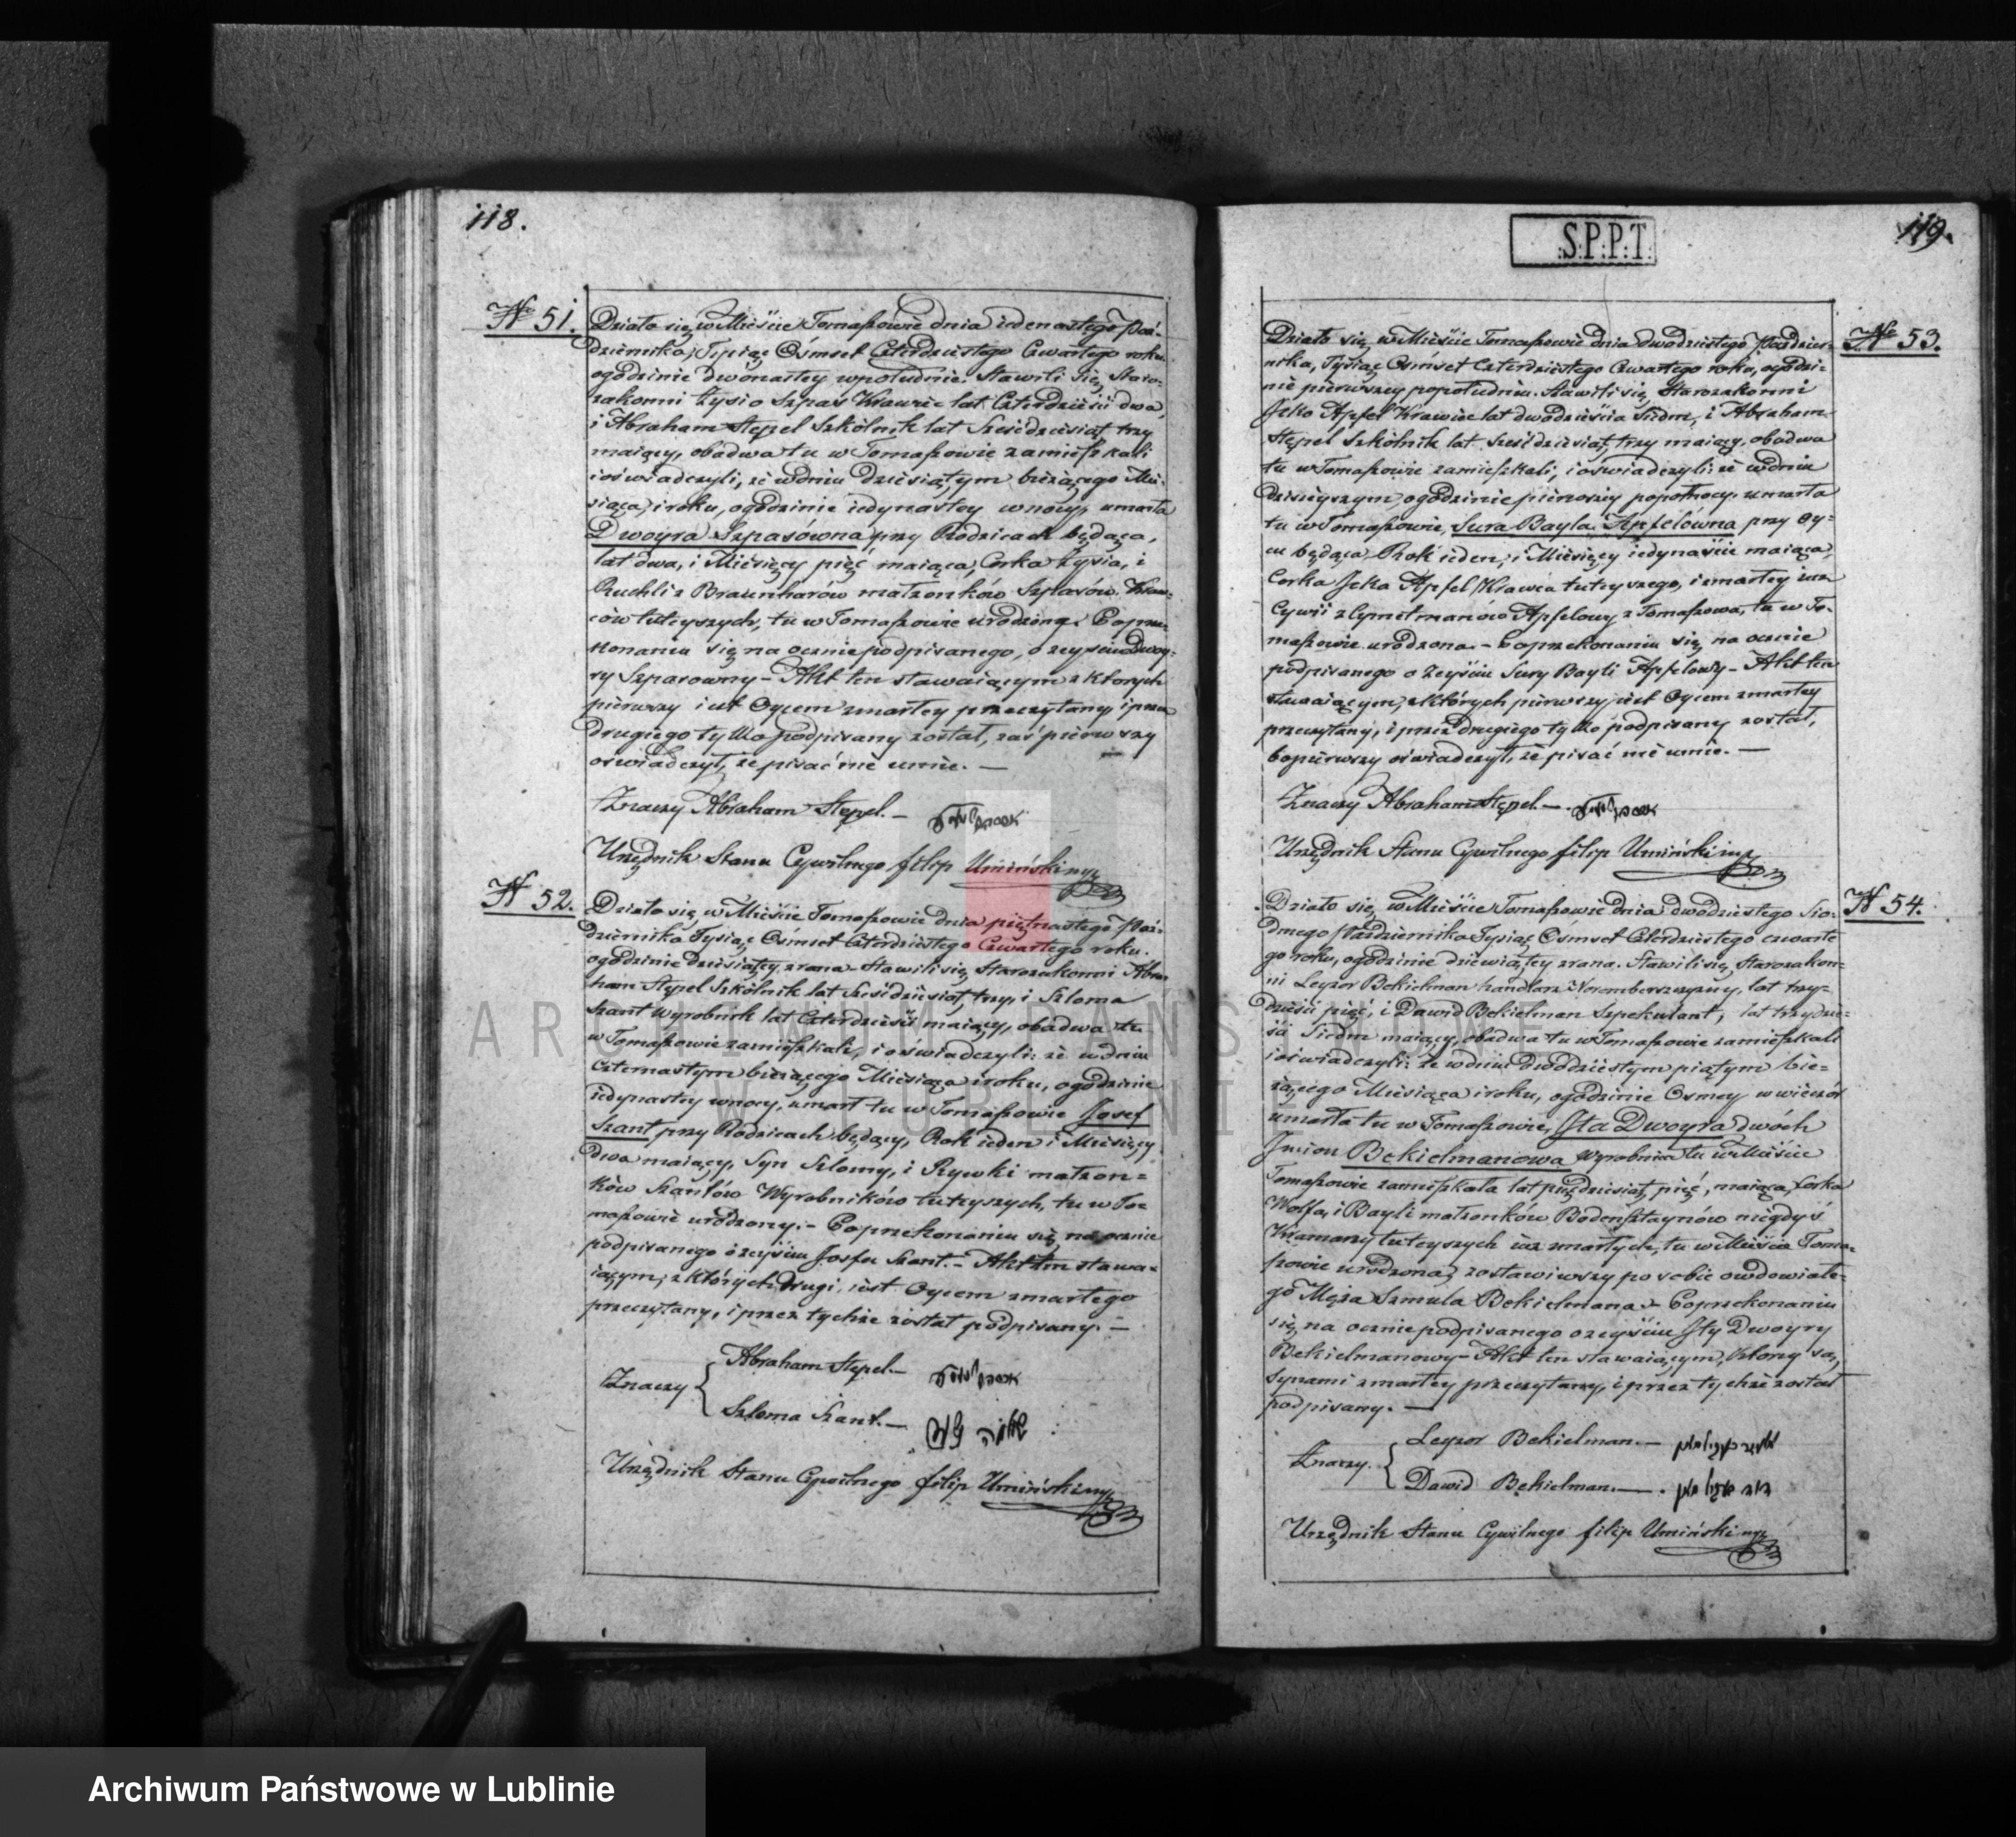 118.
No 51.
Działo się w Mieście Tomaszowie dnia iedenastego Paź-
dziernika, Tysiąc Ośmset Czterdziestego Czwartego roku.
ogodzinie dwonastey wpołudnie. Stawili się Staro-
zakonni Zysio Szpas Krawiec lat Czterdzieści dwa,
i Abraham Stępel Szkólnik lat Sześćdziesiąt trzy
maiący, obadwa tu w Tomaszowie zamieszkali
i oświadczyli, że wdniu dziesiątym bieżącego Mie-
siąca i roku, ogodzinie iedynastey wnocy, umarła
Dwoyra Szpasówna przy Rodzicach będąca,
lat dwa, i Miesięcy pięć maiąca, Corka Zysia, i
Ruchli z Braunharów małżonków Szpasów Kraw-
ców tuteyszych, tu w Tomaszowie urodzona. Poprze-
konaniu się na ocznie podpisanego, o zeyściu Dwoy-
ry Szpasowny - Akt ten stawaiącym z których
pierwszy iest Oycem zmarłey przeczytany, i przez
drugiego tylko podpisany został, zaś pierwszy
oświadczył, że pisać nie umie. —
Znaczy Abraham Stępel. —
Urzędnik Stanu Cywilnego filip Umiński mp
N 52.
Działo się w Mieście Tomaszowie dnia piętnastego Paź-
dziernika Tysiąc Ośmset Czterdziestego Czwartego roku.
ogodzinie dziesiątey zrana. Stawili się Starozakonni Abra-
ham Stępel Szkólnik lat Sześćdziesiąt trzy, i Szloma
Szant Wyrobnik lat Czterdzieści maiący, obadwa tu
w Tomaszowie zamieszkali, i oświadczyli: że wdniu
czternastym bieżącego Miesiąca i roku, ogodzinie
iedynastey wnocy, umarł tu w Tomaszowie Josef
Szant przy Rodzicach będący, Rok ieden i Miesięcy
dwa maiący, Syn Szlomy, i Rywki małżon-
ków Szantów Wyrobników tuteyszych, tu w To-
maszowie urodzony. - Poprzekonaniu się na ocznie
podpisanego o zeyściu Josfa Szant. - Akt ten stawa-
iącym, z których drugi, iest Oycem zmarłego
przeczytany, i przez tychże został podpisany. —
Znaczy { Abraham Stępel. —
Szloma Szant. — שלמה
Urzędnik Stanu Cywilnego filip Umiński mp
S.P.P.T.
119.
No 53.
Działo się w Mieście Tomaszowie dnia dwudziestego Paździer-
nika, Tysiąc Ośmset Czterdziestego Czwartego roku, ogodzi-
nie pierwszey popołudniu. Stawili się Starozakonni
Jcko Apfel Krawiec lat dwadzieścia Siedm, i Abraham
Stępel Szkólnik lat Sześćdziesiąt trzy maiący, obadwa
tu w Tomaszowie zamieszkali, i oświadczyli: że wdniu
dzisieyszym ogodzinie pierwszey popołnocy, umarła
tu w Tomaszowie, Sura Bayla Apfelówna przy Oy-
cu będąca Rok ieden, i Miesięcy iedynaście maiąca,
Corka Jcka Apfel Krawca tuteyszego, i zmarłey iuż
Cywii z Cymelmanów Apfelowy z Tomaszowa, tu w To-
maszowie urodzona. - Poprzekonaniu się na ocznie
podpisanego o Zeyściu Sury Bayli Apfelowy - Akt ten
stawaiącym, z których pierwszy iest Oycem zmarłey
przeczytany, i przez drugiego tylko podpisany został,
bopierwszy oświadczył, że pisać nie umie. —
Znaczy Abraham Stępel —
Urzędnik Stanu Cywilnego filip Umiński mp
N 54.
Działo się w Mieście Tomaszowie dnia dwudziestego Sio-
dmego Października Tysiąc Ośmset Czterdziestego czwarte-
go roku, ogodzinie dziewiątey zrana. Stawili się Starozakon-
ni Leyzor Bekielman handlarz, lat trzy-
dzieści pięć, i Dawid Bekielman Szpekulant, lat trzydzie-
ści Siedm maiący, obadwa tu w Tomaszowie zamieszkali
i oświadczyli: że wdniu dwudziestym piątym bie-
żącego Miesiąca i roku, ogodzinie Osmey wwieczór
umarła tu w Tomaszowie, Jta Dwoyra dwóch
Jmion Bekielmanowa Wyrobnica tu w Mieście
Tomaszowie zamieszkała lat pięćdziesiąt pięć, maiąca, Corka
Wolfa, i Bayli małżonków Bodensztaynów niegdyś
Kramarzy tuteyszych iuż zmarłych, tu w Mieście Toma-
szowie urodzona, zostawiwszy po sobie owdowiałe-
go Męża Szmula Bekielmana. - Poprzekonaniu
się na ocznie podpisanego o zeyściu Jty Dwoyry
Bekielmanowy - Akt ten stawaiącym, którzy są
Synami zmarłey przeczytany, i przez tychże został
podpisany. —
Znaczy. { Leyzor Bekielman. —
Dawid Bekielman. — דוד
Urzędnik Stanu Cywilnego filip Umiński mp
ARCHIWUM PAŃSTWOWE
W LUBLINIE
Archiwum Państwowe w Lublinie